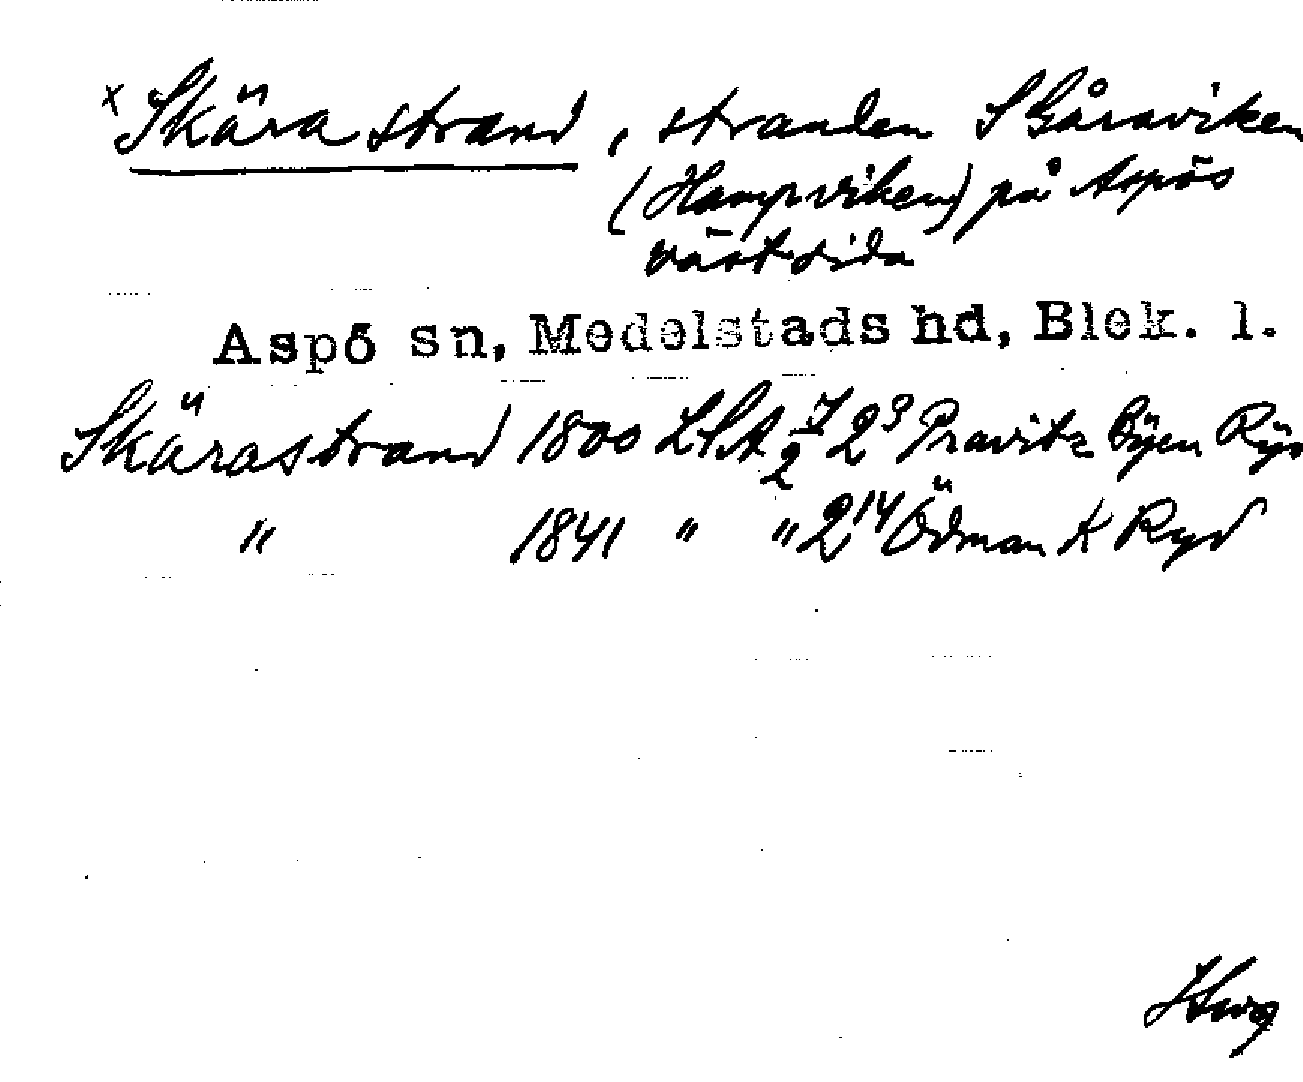 x Skärastrand, stranden S Gåraviken
(Hampviken) på Aspös
västsida
Aspö sn, Medelstads hd, Blek. l.
Skärastrand 1800 LSA 7/2 2⁹ Pravitz Byen
" 1841 " " 2¹⁴ Ödman K Ryd